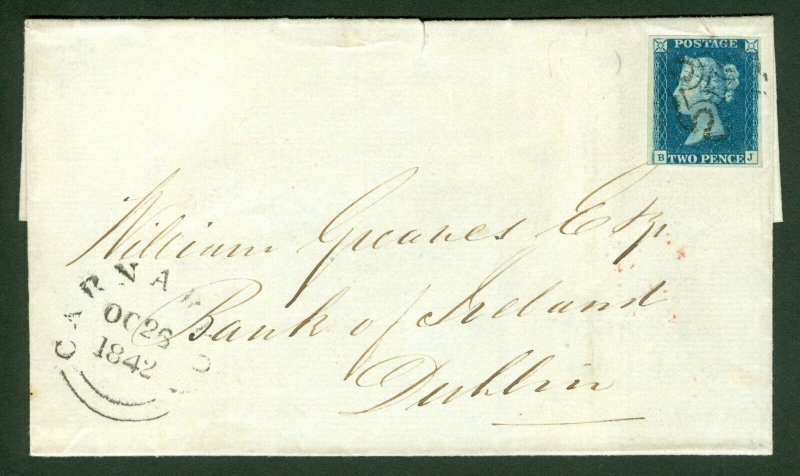 POSTAGE
B TWO PENCE J
William Greaves Esqr.
Bank of Ireland
Dublin
CARNARVON
OC 28
1842